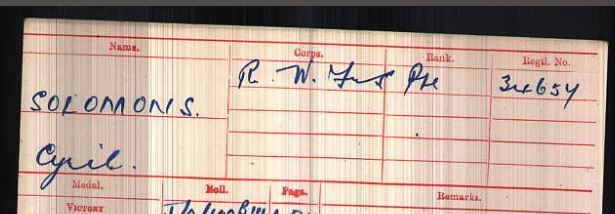 Name. Corps. Rank. Regtl. No.
R. W. Fus Pte 34654
SOLOMONS.
Cyril.
Medal. Roll. Page. Remarks.
VICTORY